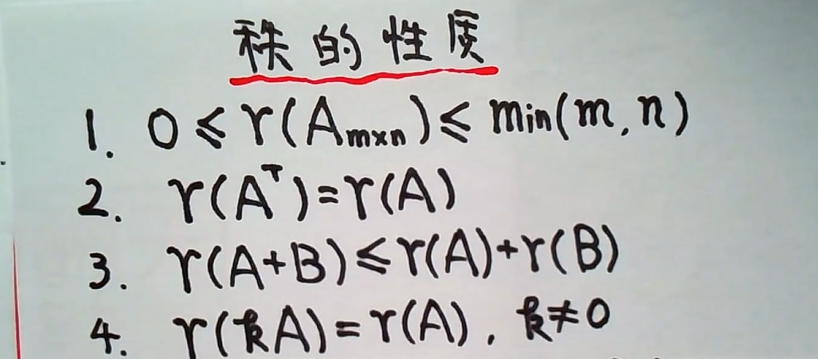 秩的性质
1. 0≤r(Aₘₓₙ)≤min(m,n)
2. r(Aᵀ)=r(A)
3. r(A+B)≤r(A)+r(B)
4. r(kA)=r(A), k≠0